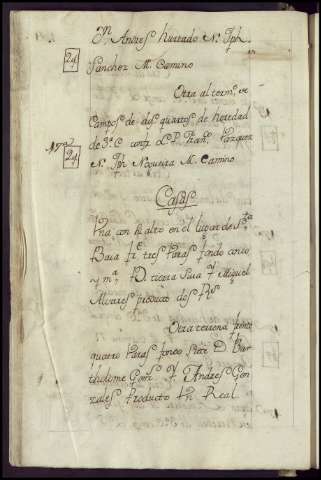 Pn Andres hurtado N. Jph
24
Sanchez M. Camino
Otra al termo de
Campos de dos quartos de heredad
de 3a C confa L P. Franco Vazquez
24
N. Jph Nogueira M. Camino
Casas
Una con su alto en el lugar de Sta
Baia fte tres Varas fondo cinco
y ma D. tierra Para Y Miguel
Alvares producto dos Rs
Otra terrena frente
quatro Varas fondo siete D. Bar
tholome Gonz Y Andres Gon
zales Producto Un Real